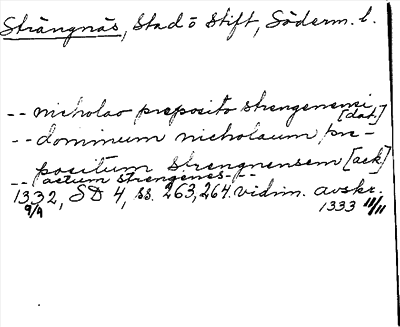 Strängnäs, Stad o Stift, Söderm. l.
-- nicholao preposito strengenensi [dat]
-- dominum nicholaum pre-
positum strengnensem [ack]
-- actum strengenes ---
1332, SD 4, ss. 263, 264. vidim. avskr.
9/9 1333 11/11